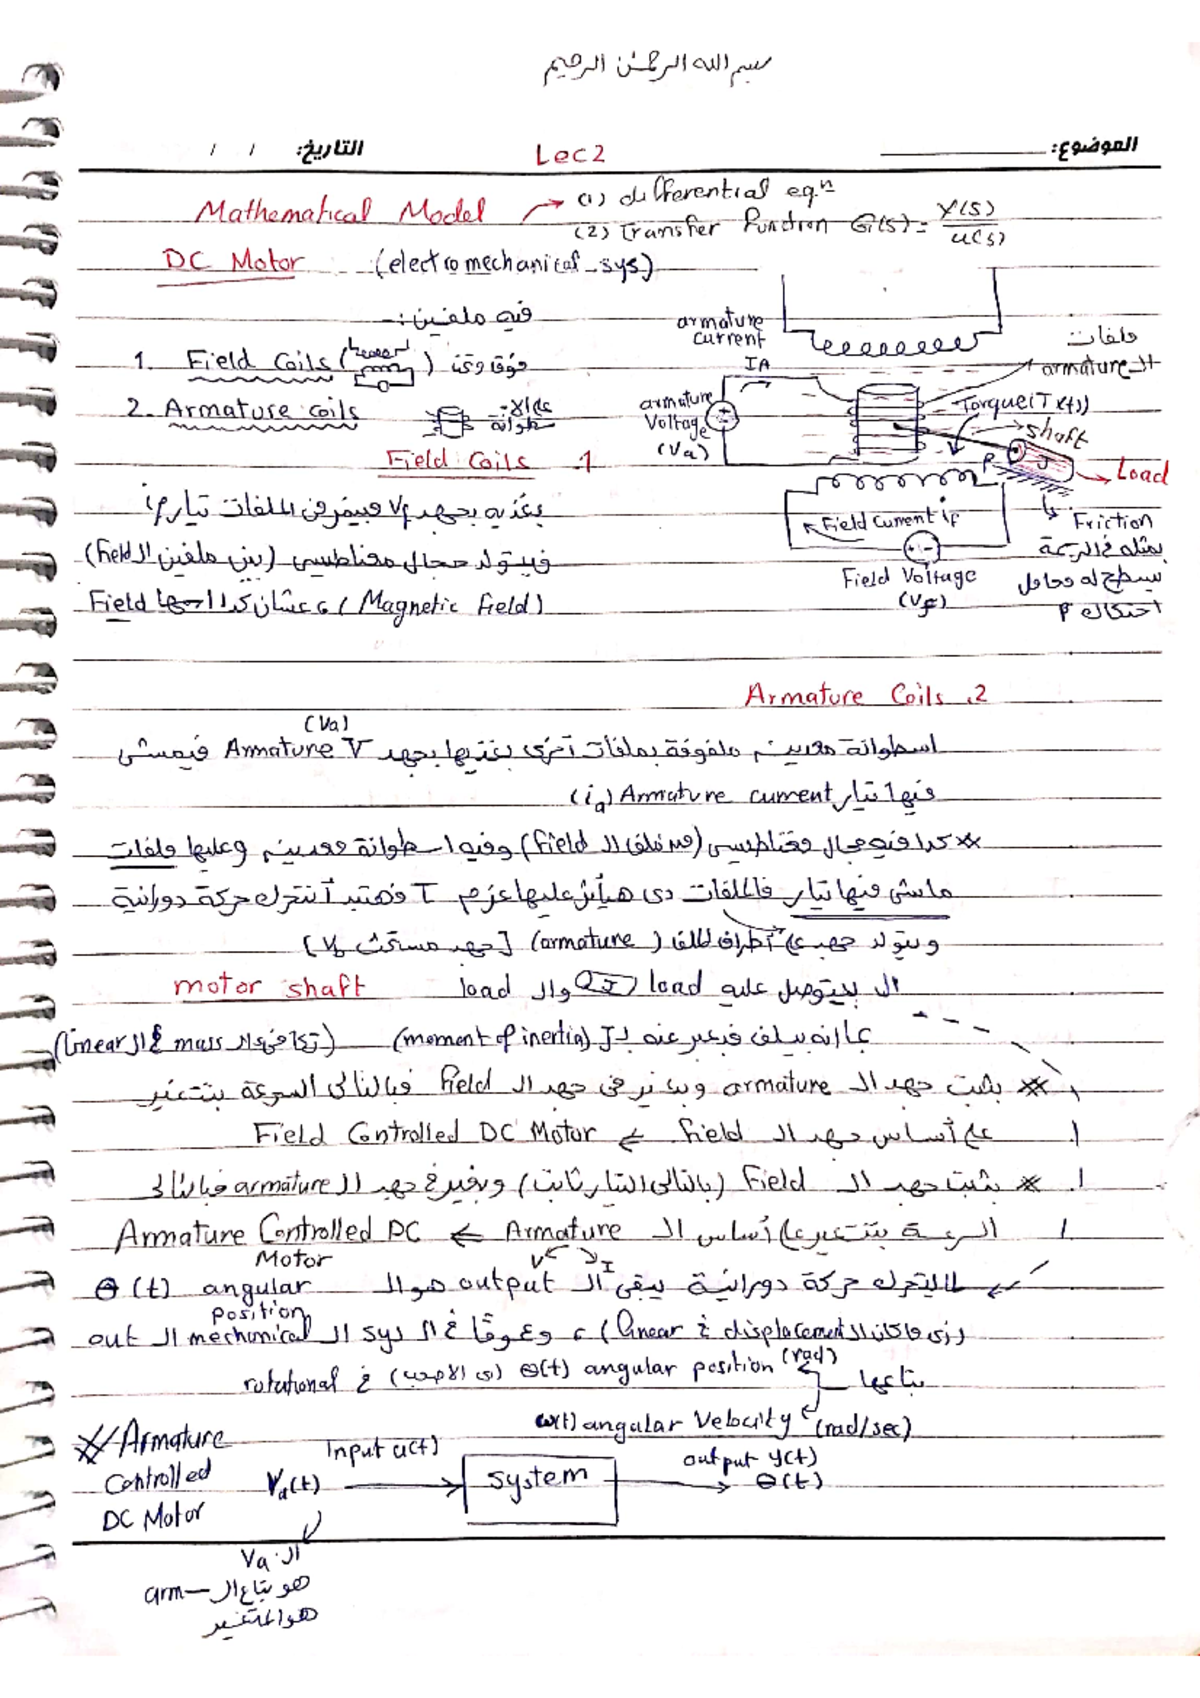 بسم الله الرحمن الرحيم
الموضوع: التاريخ: / /
Lec2
Mathematical Model → (1) differential eqⁿ
(2) Transfer Function G(s) = Y(s)/u(s)
DC Motor (electromechanical_sys)
فيه ملفين :-
1. Field Coils ( ) فوق وتحت
2. Armature coils على الاسطوانة
armature current
IA
armature Voltage (Va)
ملفات الـ armature
Torque(T(t))
shaft
J
Load
Field current if
Field Voltage (Vf)
Friction
بيمثله
سطح له معامل
احتكاك β
Field Coils .1
بغذيه بجهد Vf فيمر في الملفات تيار if
فيتولد مجال مغناطيسي (بين ملفين الـ Field)
(Magnetic Field) ، عشان كدا اسمها Field
Armature Coils .2
اسطوانة معدنية ملفوفة بملفات أخرى بغذيها بجهد Armature V (Va) فيمشي
فيها تيار Armature current (ia)
* كدا فيه مجال مغناطيسي (من ملف الـ Field) وفيه اسطوانة معدنية وعليها ملفات
ماشي فيها تيار فالملفات دي هيأثر عليها عزم T فهتبدأ تتحرك حركة دورانية
ويتولد جهد على أطراف الملف (armature) [جهد مستحث Vb]
motor shaft
الـ بيتوصل عليه load والـ load
بما انه بيلف فبعبر عنه بـ J (moment of inertia) (زي الـ mass في الـ linear)
* بثبت جهد الـ armature وبغير في جهد الـ Field فبالتالى السرعة بتتغير
على أساس جهد الـ Field ⇐ Field Controlled DC Motor
* بثبت جهد الـ Field (بالتالى التيار ثابت) وبغير في جهد الـ armature فبالتالى
السرعة بتتغير على أساس الـ Armature ⇐ Armature Controlled DC Motor
V I
لما بيتحرك حركة دورانية يبقى الـ output هو الـ θ(t) angular position
(زي ما كان الـ displacement في linear) ، وعمومًا في الـ sys الـ mechanical الـ out
بتاعها θ(t) angular position (rad) في rotational
ω(t) angular Velocity (rad/sec)
* Armature Controlled DC Motor
Input u(t)
Va(t)
system
output y(t)
θ(t)
الـ Va
هو بتاع الـ arm
هو المتغير